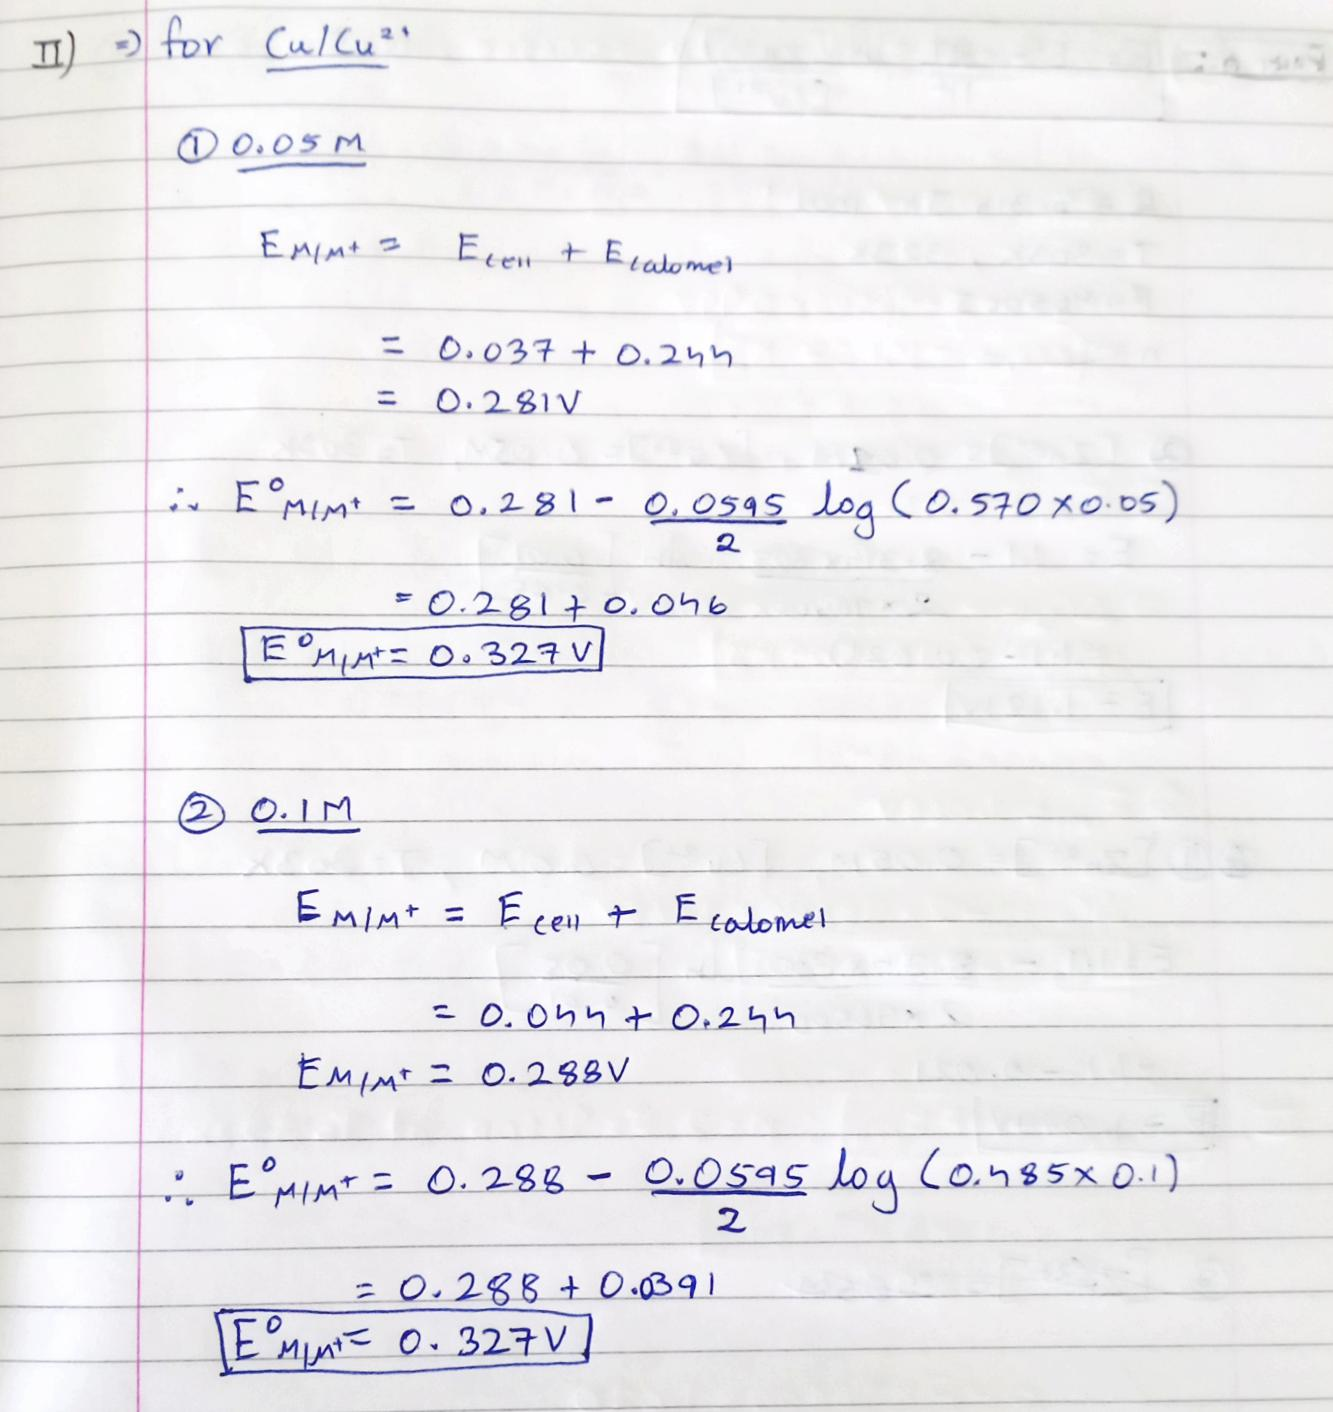 II) ⇒ for Cu/Cu²⁺
① 0.05 M
E M/M+ = E cell + E calomel
= 0.037 + 0.244
= 0.281V
∴ E° M/M+ = 0.281 - 0.0595/2 log (0.570 x 0.05)
= 0.281 + 0.046
E° M/M+ = 0.327 V
② 0.1 M
E M/M+ = E cell + E calomel
= 0.044 + 0.244
E M/M+ = 0.288V
∴ E° M/M+ = 0.288 - 0.0595/2 log (0.485 x 0.1)
= 0.288 + 0.0391
E° M/M+ = 0.327 V